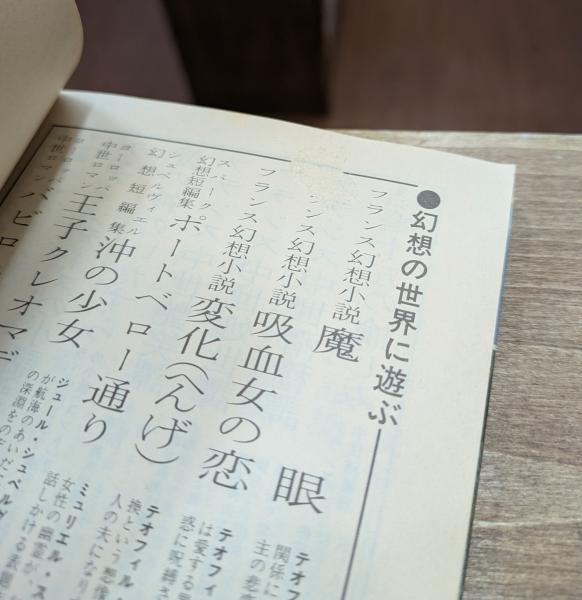 ●幻想の世界に遊ぶ
フランス幻想小説 魔眼
テオフ
関係に
主の悲
ンス幻想小説 吸血女の恋
テオフィ
は愛する
惑に呪縛さ
フランス幻想小説 変化(へんげ)
テオフィル・
換という想像
人の夫になり
スパーク
幻想短編集 ポートベロー通り
ミュリエル・ス
女性の幽霊が、
話しかける表題
シュペルヴィエル
幻想短編集 沖の少女
ジュール・シュペルヴ
が航海のあいだに
の深淵をの
ヨーロッパ
中世ロマン 王子クレオマデ
中世ロマン バビロ